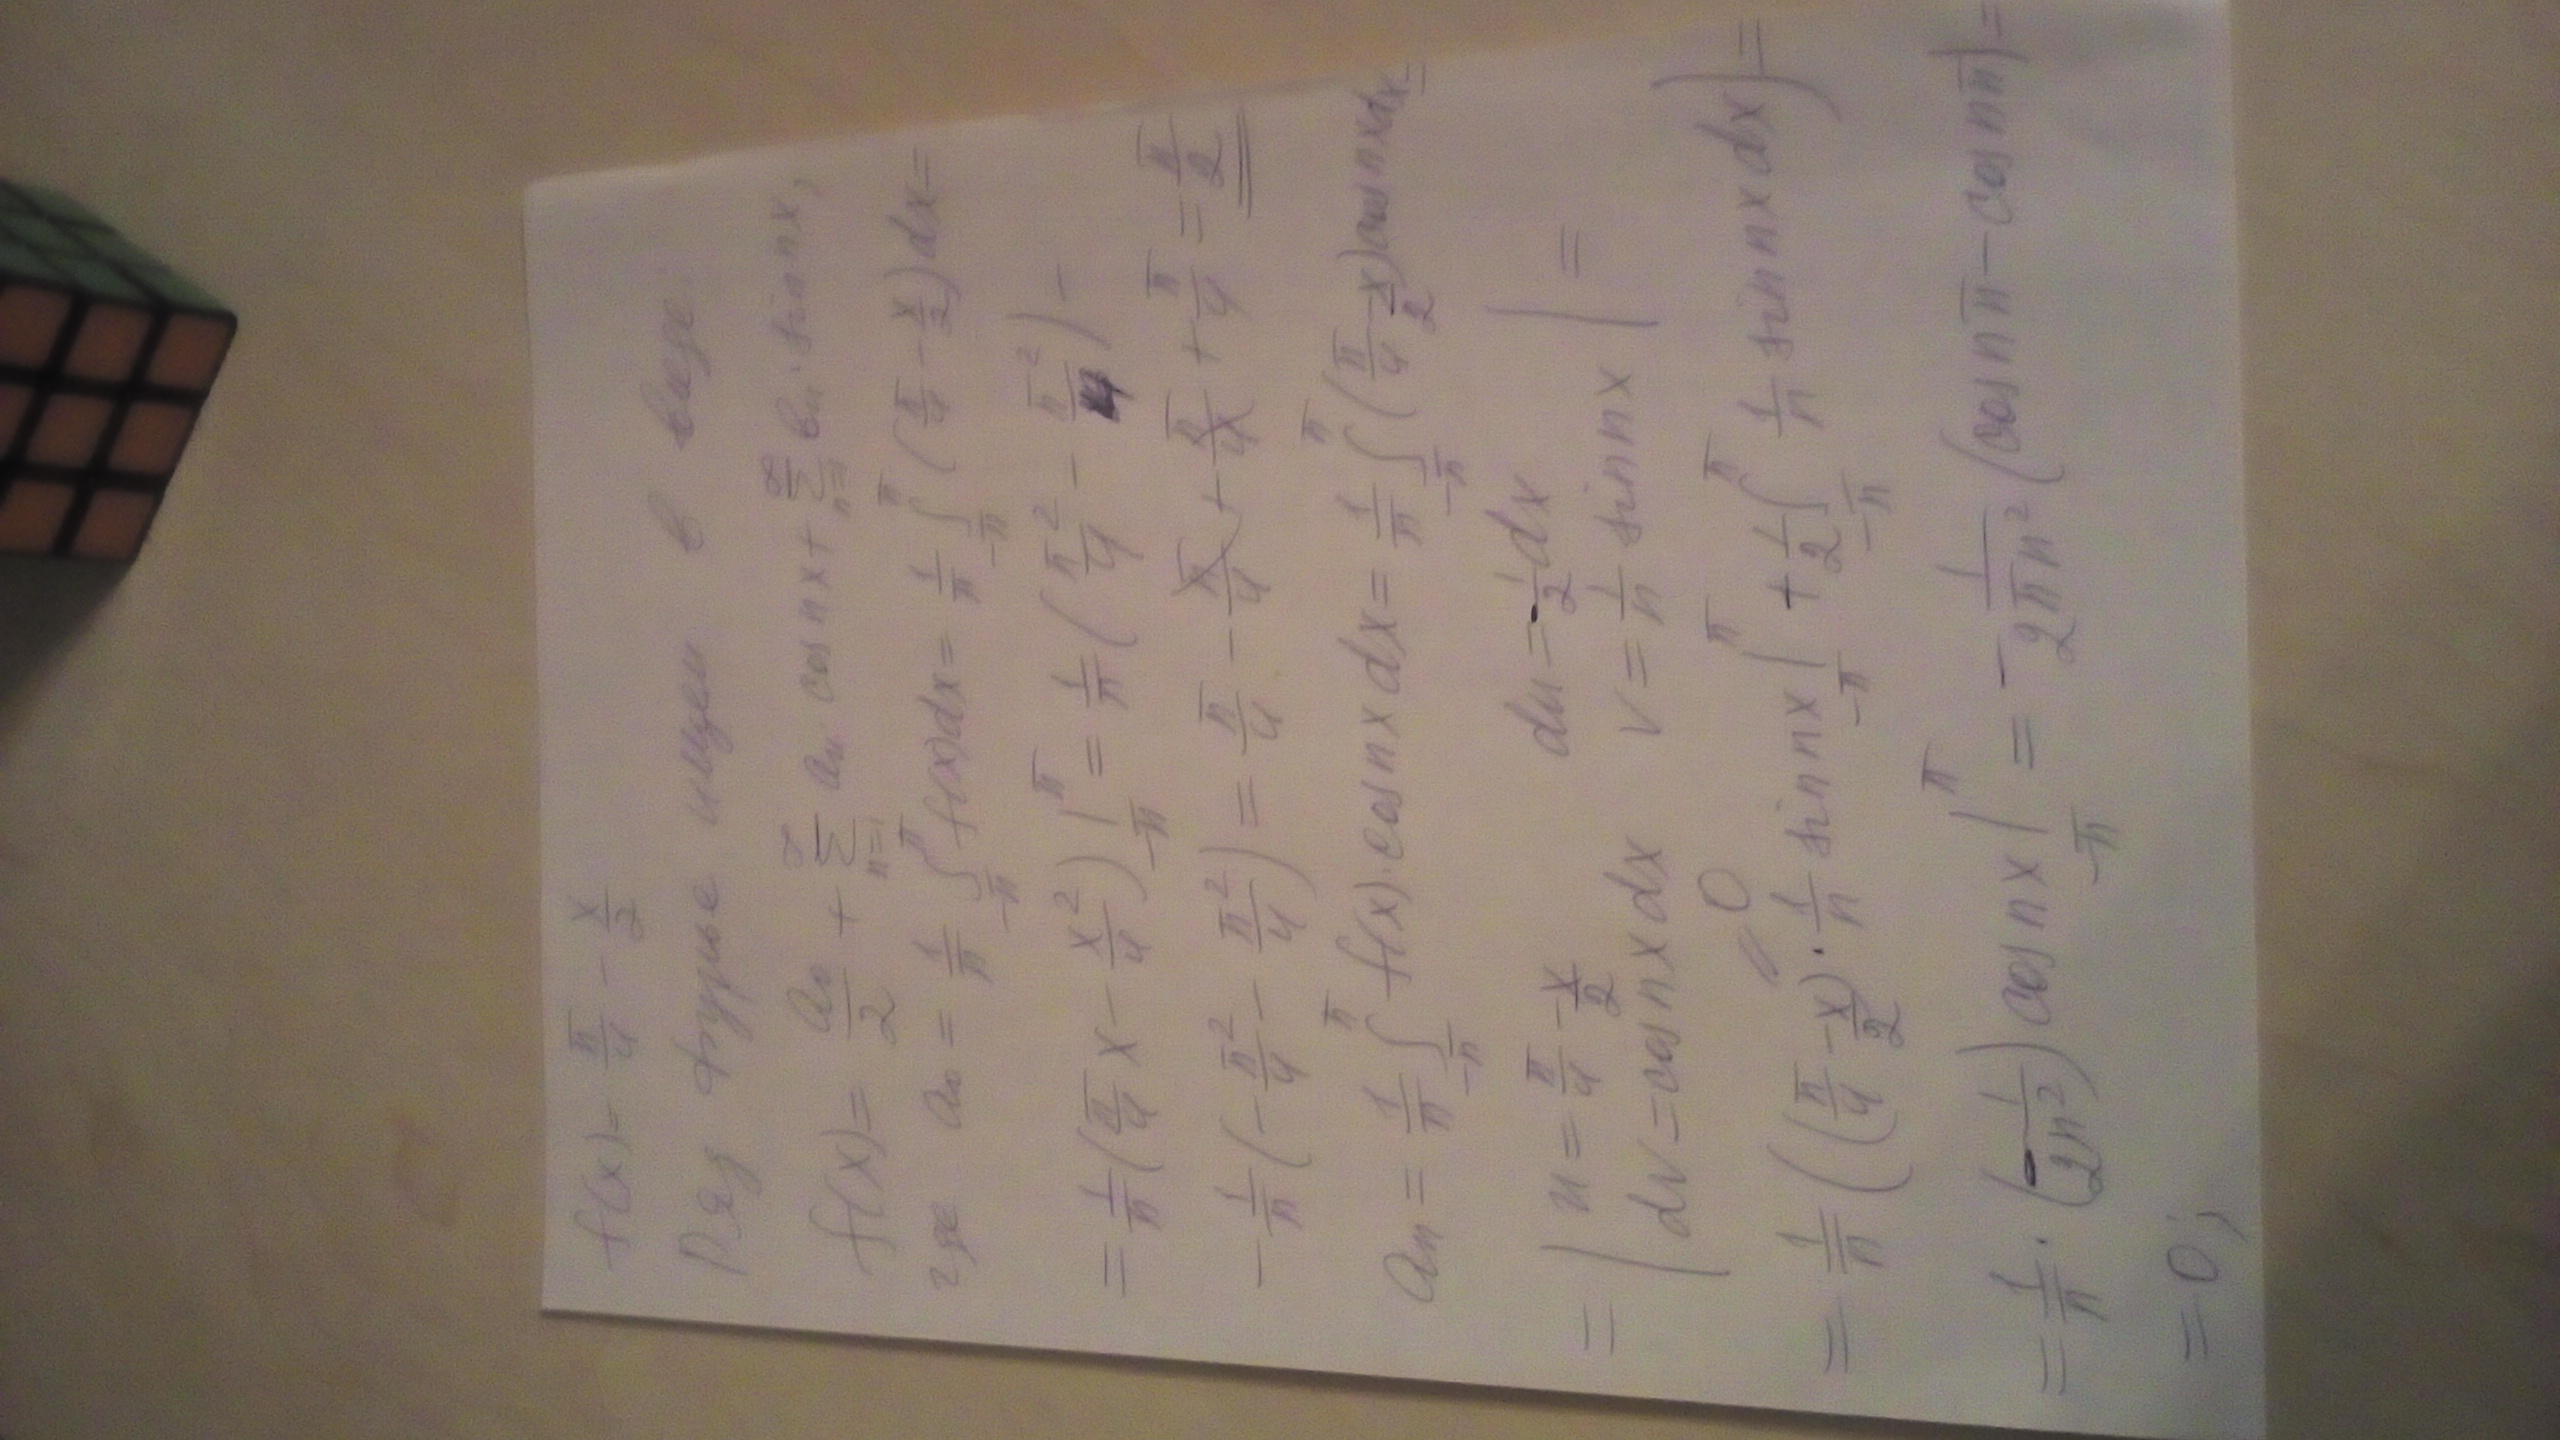 f(x) = π/4 - x/2
Ряд Фурье ищем в виде:
f(x) = a₀/2 + ∑_{n=1}^{∞} aₙ cos nx + ∑_{n=1}^{∞} bₙ · sin nx,
где a₀ = 1/π ∫_{-π}^{π} f(x)dx = 1/π ∫_{-π}^{π} (π/4 - x/2) dx =
= 1/π (π/4 x - x²/4) |_{-π}^{π} = 1/π (π²/4 - π²/4) -
- 1/π (- π²/4 - π²/4) = π/4 - π/4 + π/4 + π/4 = π/2
aₙ = 1/π ∫_{-π}^{π} f(x) · cos nx dx = 1/π ∫_{-π}^{π} (π/4 - x/2) cos nx dx =
= | u = π/4 - x/2 du = - 1/2 dx
dv = cos nx dx v = 1/n sin nx | =
= 1/π ((π/4 - x/2) · 1/n sin nx |_{-π}^{π} + 1/2 ∫_{-π}^{π} 1/n sin nx dx) =
0
= 1/π · (- 1/2n²) cos nx |_{-π}^{π} = - 1/2πn² (cos nπ - cos nπ) =
= 0;